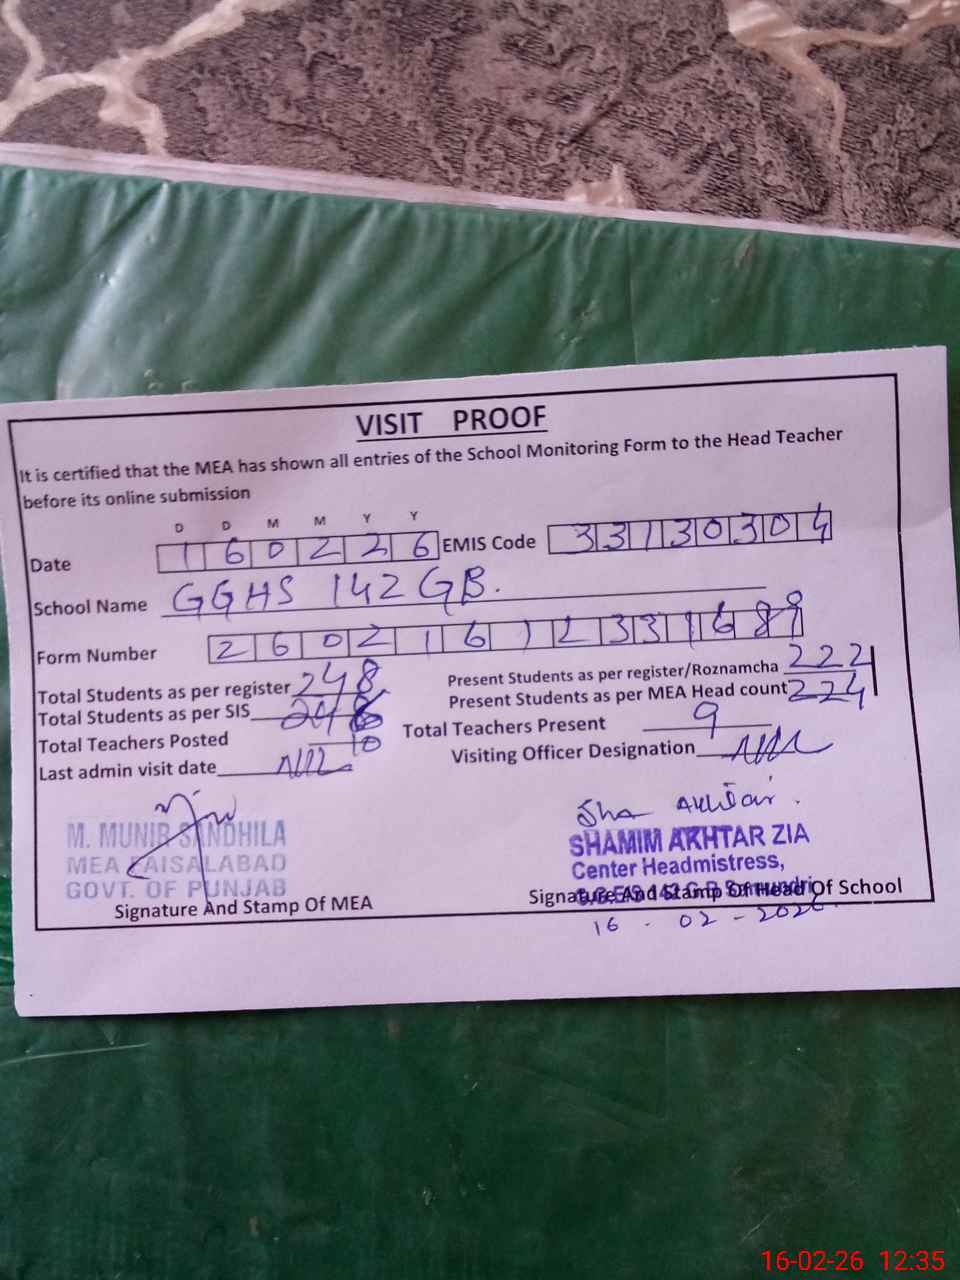 VISIT PROOF
It is certified that the MEA has shown all entries of the School Monitoring Form to the Head Teacher
before its online submission
D D M M Y Y
Date 1 6 0 2 2 6 EMIS Code 3 3 1 3 0 3 0 4
School Name GGHS 142 GB.
Form Number 2 6 0 2 1 6 1 2 3 3 1 6 8 9
Total Students as per register 248 Present Students as per register/Roznamcha 222
Total Students as per SIS 248 Present Students as per MEA Head count 224
Total Teachers Posted 10 Total Teachers Present 9
Last admin visit date Nil Visiting Officer Designation Nil
Sha Akhtar.
M. MUNIR SANDHILA SHAMIM AKHTAR ZIA
MEA FAISALABAD Center Headmistress,
GOVT. OF PUNJAB
Signature And Stamp Of MEA Signature And Stamp Of Head Of School
16 - 02 - 2026.
16-02-26 12:35